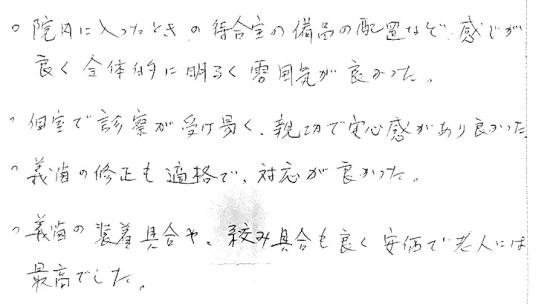 ○ 院内に入ったときの待合室の備品の配置など、感じが
良く全体的に明るく雰囲気が良かった。
○ 個室で診察が受け易く、親切で安心感があり良かった
○ 義歯の修正も適格で、対応が良かった。
○ 義歯の装着具合や、咬み具合も良く安価で老人には
最高でした。